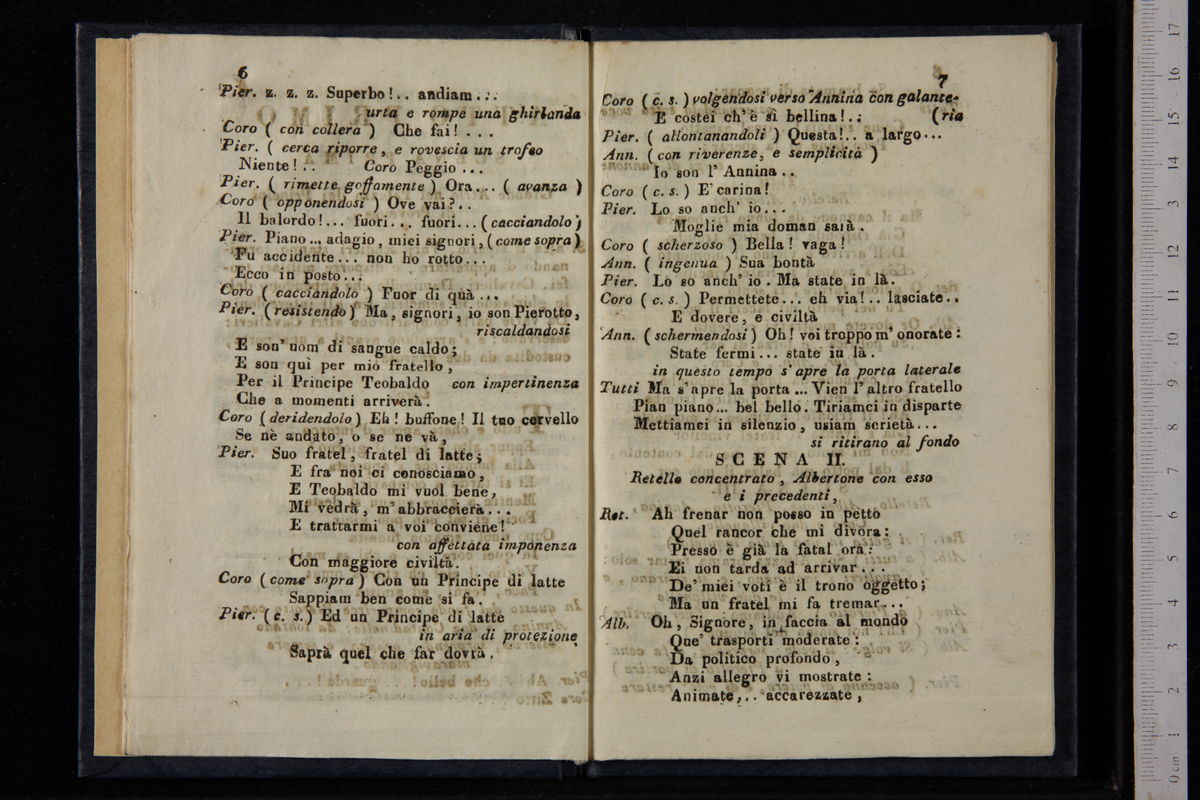 6
Pier. z. z. z. Superbo!.. andiam...
urta e rompe una ghirlanda
Coro ( con collera ) Che fai! ...
Pier. ( cerca riporre, e rovescia un trofeo
Niente! .. Coro Peggio ...
Pier. ( rimette goffamente ) Ora... ( avanza )
Coro ( opponendosi ) Ove vai?..
Il balordo!... fuori... fuori... (cacciandolo)
Pier. Piano .., adagio, miei signori, (come sopra)
Fu accidente... non ho rotto...
Ecco in posto...
Coro ( cacciandolo ) Fuor di quà ...
Pier. (resistendo) Ma, signori, io son Pierotto,
riscaldandosi
E son' uom di sangue caldo;
E son quì per mio fratello,
Per il Principe Teobaldo con impertinenza
Che a momenti arriverà.
Coro (deridendolo) Eh! buffone! Il tuo cervello
Se nè andato, o se ne và,
Pier. Suo fratel, fratel di latte;
E fra noi ci conosciamo,
E Teobaldo mi vuol bene,
Mi vedrà, m'abbraccierà...
E trattarmi a voi conviene!
con affettata imponenza
Con maggiore civiltà.
Coro (come sopra) Con un Principe di latte
Sappiam ben come si fa.
Pier. (c. s.) Ed un Principe di latte
in aria di protezione
Saprà quel che far dovrà.
7
Coro ( c. s. ) volgendosi verso Annina con galante-
E costei ch' è sì bellina!.. (ria
Pier. ( allontanandoli ) Questa!.. a largo...
Ann. (con riverenze, e semplicità )
Io son l' Annina ..
Coro ( c. s. ) E' carina!
Pier. Lo so anch' io...
Moglie mia doman saià.
Coro ( scherzoso ) Bella! vaga!
Ann. ( ingenua ) Sua bontà
Pier. Lo so anch' io. Ma state in là.
Coro ( c. s. ) Permettete... eh via!.. lasciate..
E dovere, e civiltà
Ann. ( schermendosi ) Oh! voi troppo m' onorate:
State fermi... state in là.
in questo tempo s' apre la porta laterale
Tutti Ma s'apre la porta ... Vien l'altro fratello
Pian piano... bel bello. Tiriamci in disparte
Mettiamci in silenzio, usiam serietà...
si ritirano al fondo
SCENA II.
Retello concentrato, Albertone con esso
e i precedenti,
Ret. Ah frenar non posso in petto
Quel rancor che mi divora:
Presso è già la fatal ora:
Ei non tarda ad arrivar...
De' miei voti è il trono oggetto;
Ma un fratel mi fa tremar...
Alb. Oh, Signore, in faccia al mondo
Que' trasporti moderate:
Da politico profondo,
Anzi allegro vi mostrate:
Animate,.. accarezzate,